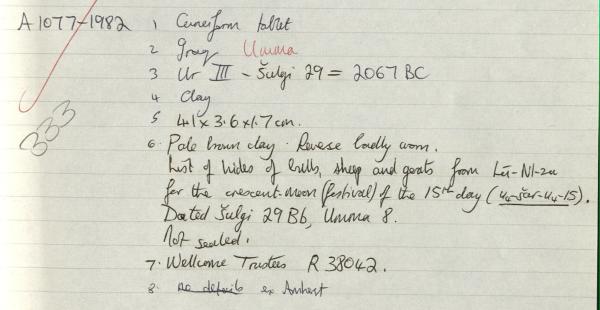 A1077-1982 1 Cuneiform tablet
2 Iraq Umma
3 Ur III - Šulgi 29 = 2067 BC
4 Clay
5 4.1 x 3.6 x 1.7 cm.
6. Pale brown clay. Reverse badly worn.
List of hides of bulls, sheep and goats from Lú-NI-za
for the crescent-moon (festival) of the 15th day (u₄-šar-u₄-15).
Dated Šulgi 29Bb, Umma 8.
Not sealed.
7. Wellcome Trustees R 38042.
8. no details ex Amherst
333